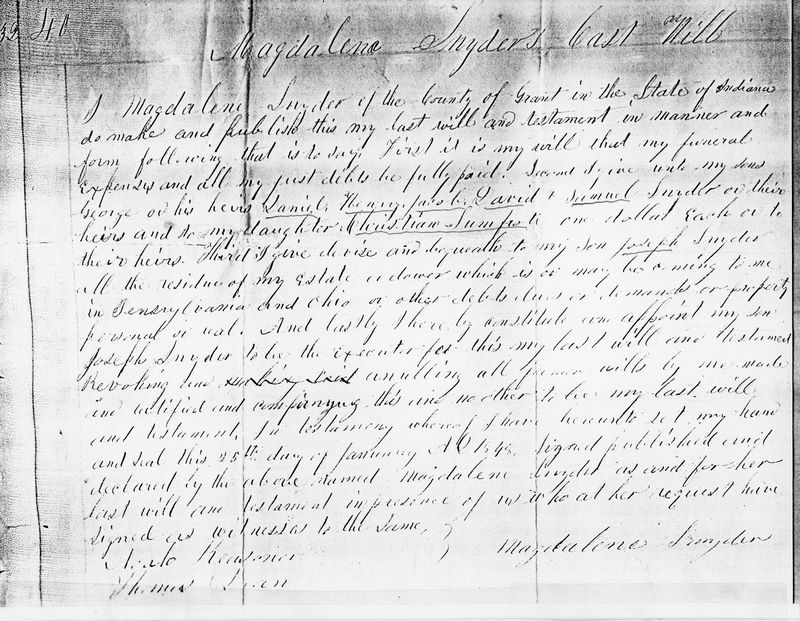 40
Magdalene Snyder's Last Will
I Magdalene Snyder of the County of Grant in the State of Indiana
do make and publish this my last will and testament in manner and
form following that is to say, First it is my will that my funeral
expenses and all my just debts be fully paid. Second I give unto my sons
George or his heirs Daniel, Henry, Jacob, David & Samuel Snyder or their
heirs and to my daughter Christian one dollar Each or to
their heirs. Third I give devise and bequeath to my son Joseph Snyder
all the residue of my Estate or dower which is or may be coming to me
in Pensrylvania and Ohio or other debts dues or demands or property
personal or real. And lastly I hereby constitute and appoint my son
Joseph Snyder to be the executor for this my last will and testament
Revoking and anulling all former wills by me made
and ratified and this and no other to be my last will
and testament, In testimony whereof I have hereunto set my hand
and seal this 25th day of January AD Signed published and
declared by the above named Magdalene Snyder as and for her
last will and testament in presence of us who at her request have
signed as witnesses to the same,
Noah Reasoner
Magdalene Snyder
Thomas